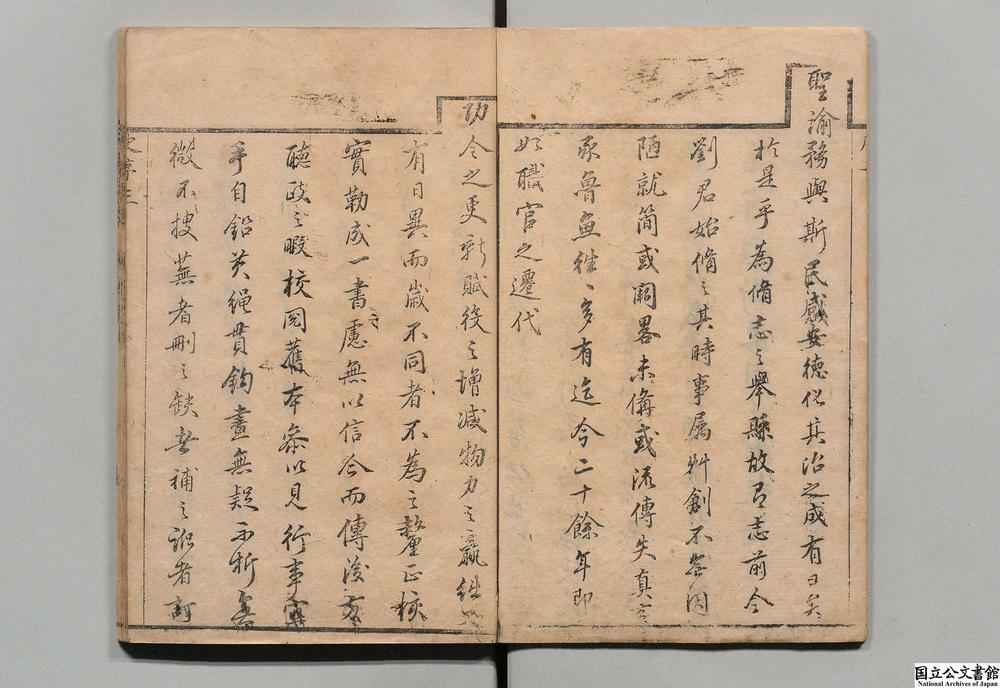 聖諭務與斯民感安德化其治之成有日矣
於是乎為脩志之舉縣故有志前令
劉君始脩之其時事屬艸創不無因
陋就簡或闕畧未備或流傳失真亥
豕魯魚往〻多有迄今二十餘年即
如職官之遷代
功令之更新賦役之增減物力之羸絀
有日異而歲不同者不為之釐正核
實勒成一書慮無以信今而傳後
聽政之暇校閱舊本叅以見行事寔
手自鉛英繩貫鈎畫無疑不析無
微不搜蕪者刪之缺者補之訛者訂
国立公文書館
National Archives of Japan